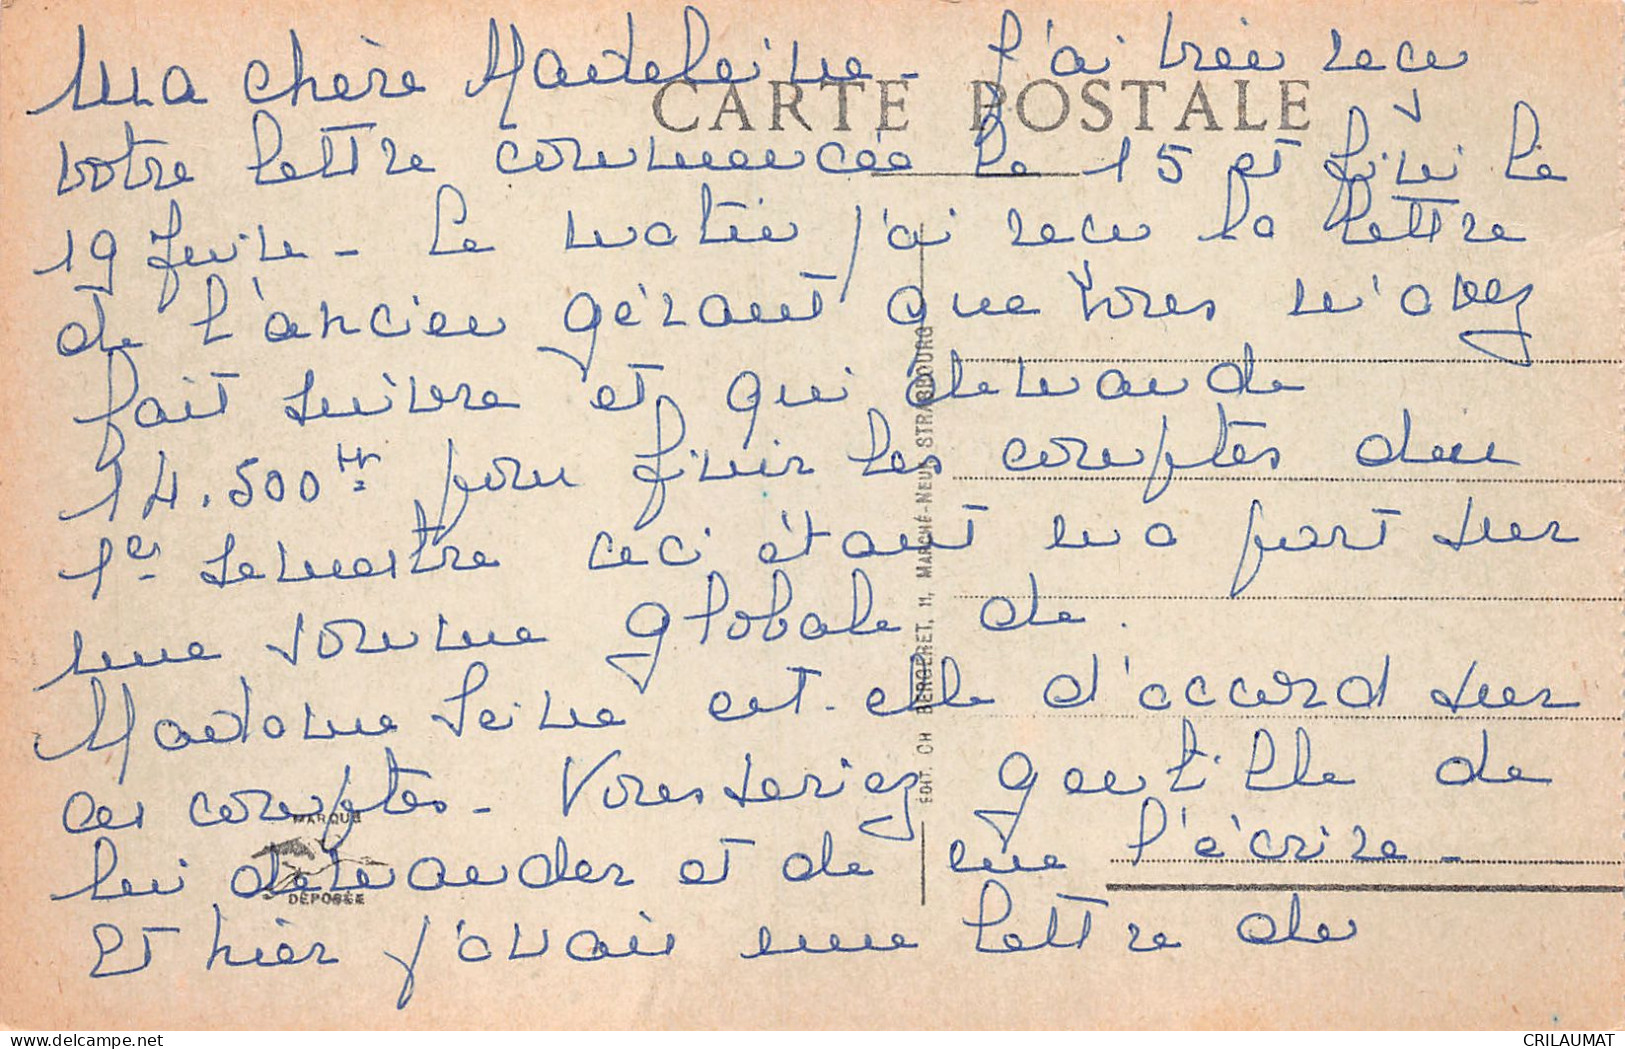 Ma chère Madeleine - J'ai bien reçu
CARTE POSTALE
votre lettre commencée le 15 et fini le
19 juin - Ce matin j'ai reçu la lettre
de l'ancien gérant que vous m'avez
fait suivre et qui demande
14.500 frs pour finir les comptes du
1er semestre ceci étant ma part sur
une somme globale de.
Madame Seine est-elle d'accord sur
ces comptes - Vous seriez gentille de
lui demander et de me l'écrire -
Et hier j'avais une lettre du
MARQUE
DÉPOSÉE
ÉDIT. CH BERGERET, 11, MARCHÉ-NEUF, STRASBOURG
CRILAUMAT